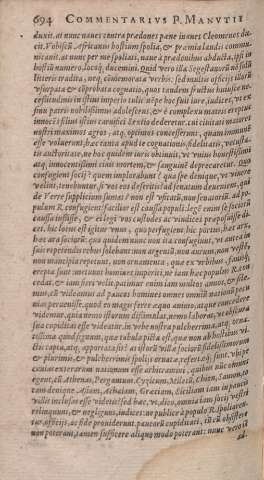 694 COMMENTARIVS P. MANVTII
duxit. at nunc naues contra prædones pane inanes Cleomenes du-
cit. Vobiscū Africanus hostium spolia, & præmia laudis commu-
nicauit. at nunc per me spoliati, naue à prædonibus abducta, ipsi in
hostiū numero, locoq; ducemini. Quid vero illa Segestanorū nō solū
litteris tradita, neq; cōmemorata verbis: sed multis officijs illorum
vsurpata & cōprobata cognatio, quos tandem fructus huiusce ne-
cessitudinis in istius imperio tulit? nēpe hoc fuit iure, iudices, vt ex
sinu patriæ nobilissimus adolescens, & è complexu matris ereptus
innocēs filius istius carnifici Sextio dederetur. cui ciuitati maiores
nostri maximos agros, atq; optimos concesserunt, quam immunē
esse voluerunt, hæc tanta apud te cognationis, fidelitatis, vetusta-
tis auctoritate, ne hoc quidem iuris obtinuit, vt vnius honestissimi
atq; innocentissimi ciuis mortem, & sanguinē deprecaretur. Quo
confugient socij? quem implorabunt? qua spe denique, vt viuere
velint, tenebuntur, si vos eos deseritis? ad senatum deuenient, qui
de Verre supplicium sumat? non est vsitatū, non senatoriū. ad po-
pulum R. confugient? facilis est caussa populi. legē enim se sociorū
caussa iussisse, & eius legis vos custodes ac vindices præposuisse di-
cet. hic locus est igitur vnus, quo perfugiunt. hic portus, hæc arx,
hæc ara sociorū. quo quidem nunc non ita confugiunt, vt antea in
suis repetendis rebus solebant. non argentū, non aurum, non vestē,
non mancipia repetunt, non ornamenta, quæ ex vrbibus, fanisq;
erepta sunt. metuunt homines imperiti, ne iam hæc populus R. con-
cedat, & iam fieri velit. patimur enim iam multos annos, & sile-
mus, cū videamus ad paucos homines omnes omnium nationum pecu-
nias peruenisse. quod eo magis ferre æquo animo, atque concedere
videmur, quia nemo istorum dissimulat, nemo laborat, vt obscura
sua cupiditas esse videatur. in vrbe nostra pulcherrima, atq; orna-
tissima quod signum, quæ tabula picta est, quæ non ab hostibus vi-
ctis capta, atq; apportata sit? at istorū villæ sociorū fidelissimorum
& plurimis, & pulcherrimis spolijs ornatæ, refertæq; sunt. vbi pe-
cunias exterarum nationum esse arbitramini, quibus nunc omnes
egent, cū Athenas, Pergamum, Cyzicum, Miletū, Chium, Samum, to-
tam denique Asiam, Achaiam, Græciam, Siciliam iam in paucis
villis inclusas esse videatis? sed hæc, vt dico, omnia iam socij vestri
relinquunt, & negligunt, iudices: ne publice à populo R. spoliaren-
tur, officijs, ac fide prouiderunt. paucorū cupiditati, tū cū obsistere
non poterant, tamen sufficere aliquo modo poterant: nunc vero